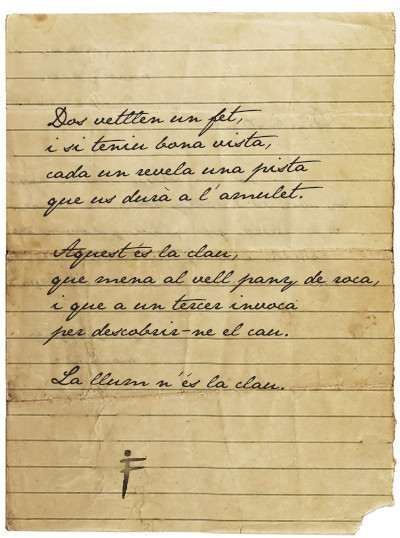 Dos vetllen un fet,
i si teniu bona vista,
cada un revela una pista
que us durà a l'amulet.
Aquest és la clau,
que mena al vell pany de roca,
i que a un tercer invoca
per descobrir-ne el cau.
La llum n'és la clau.